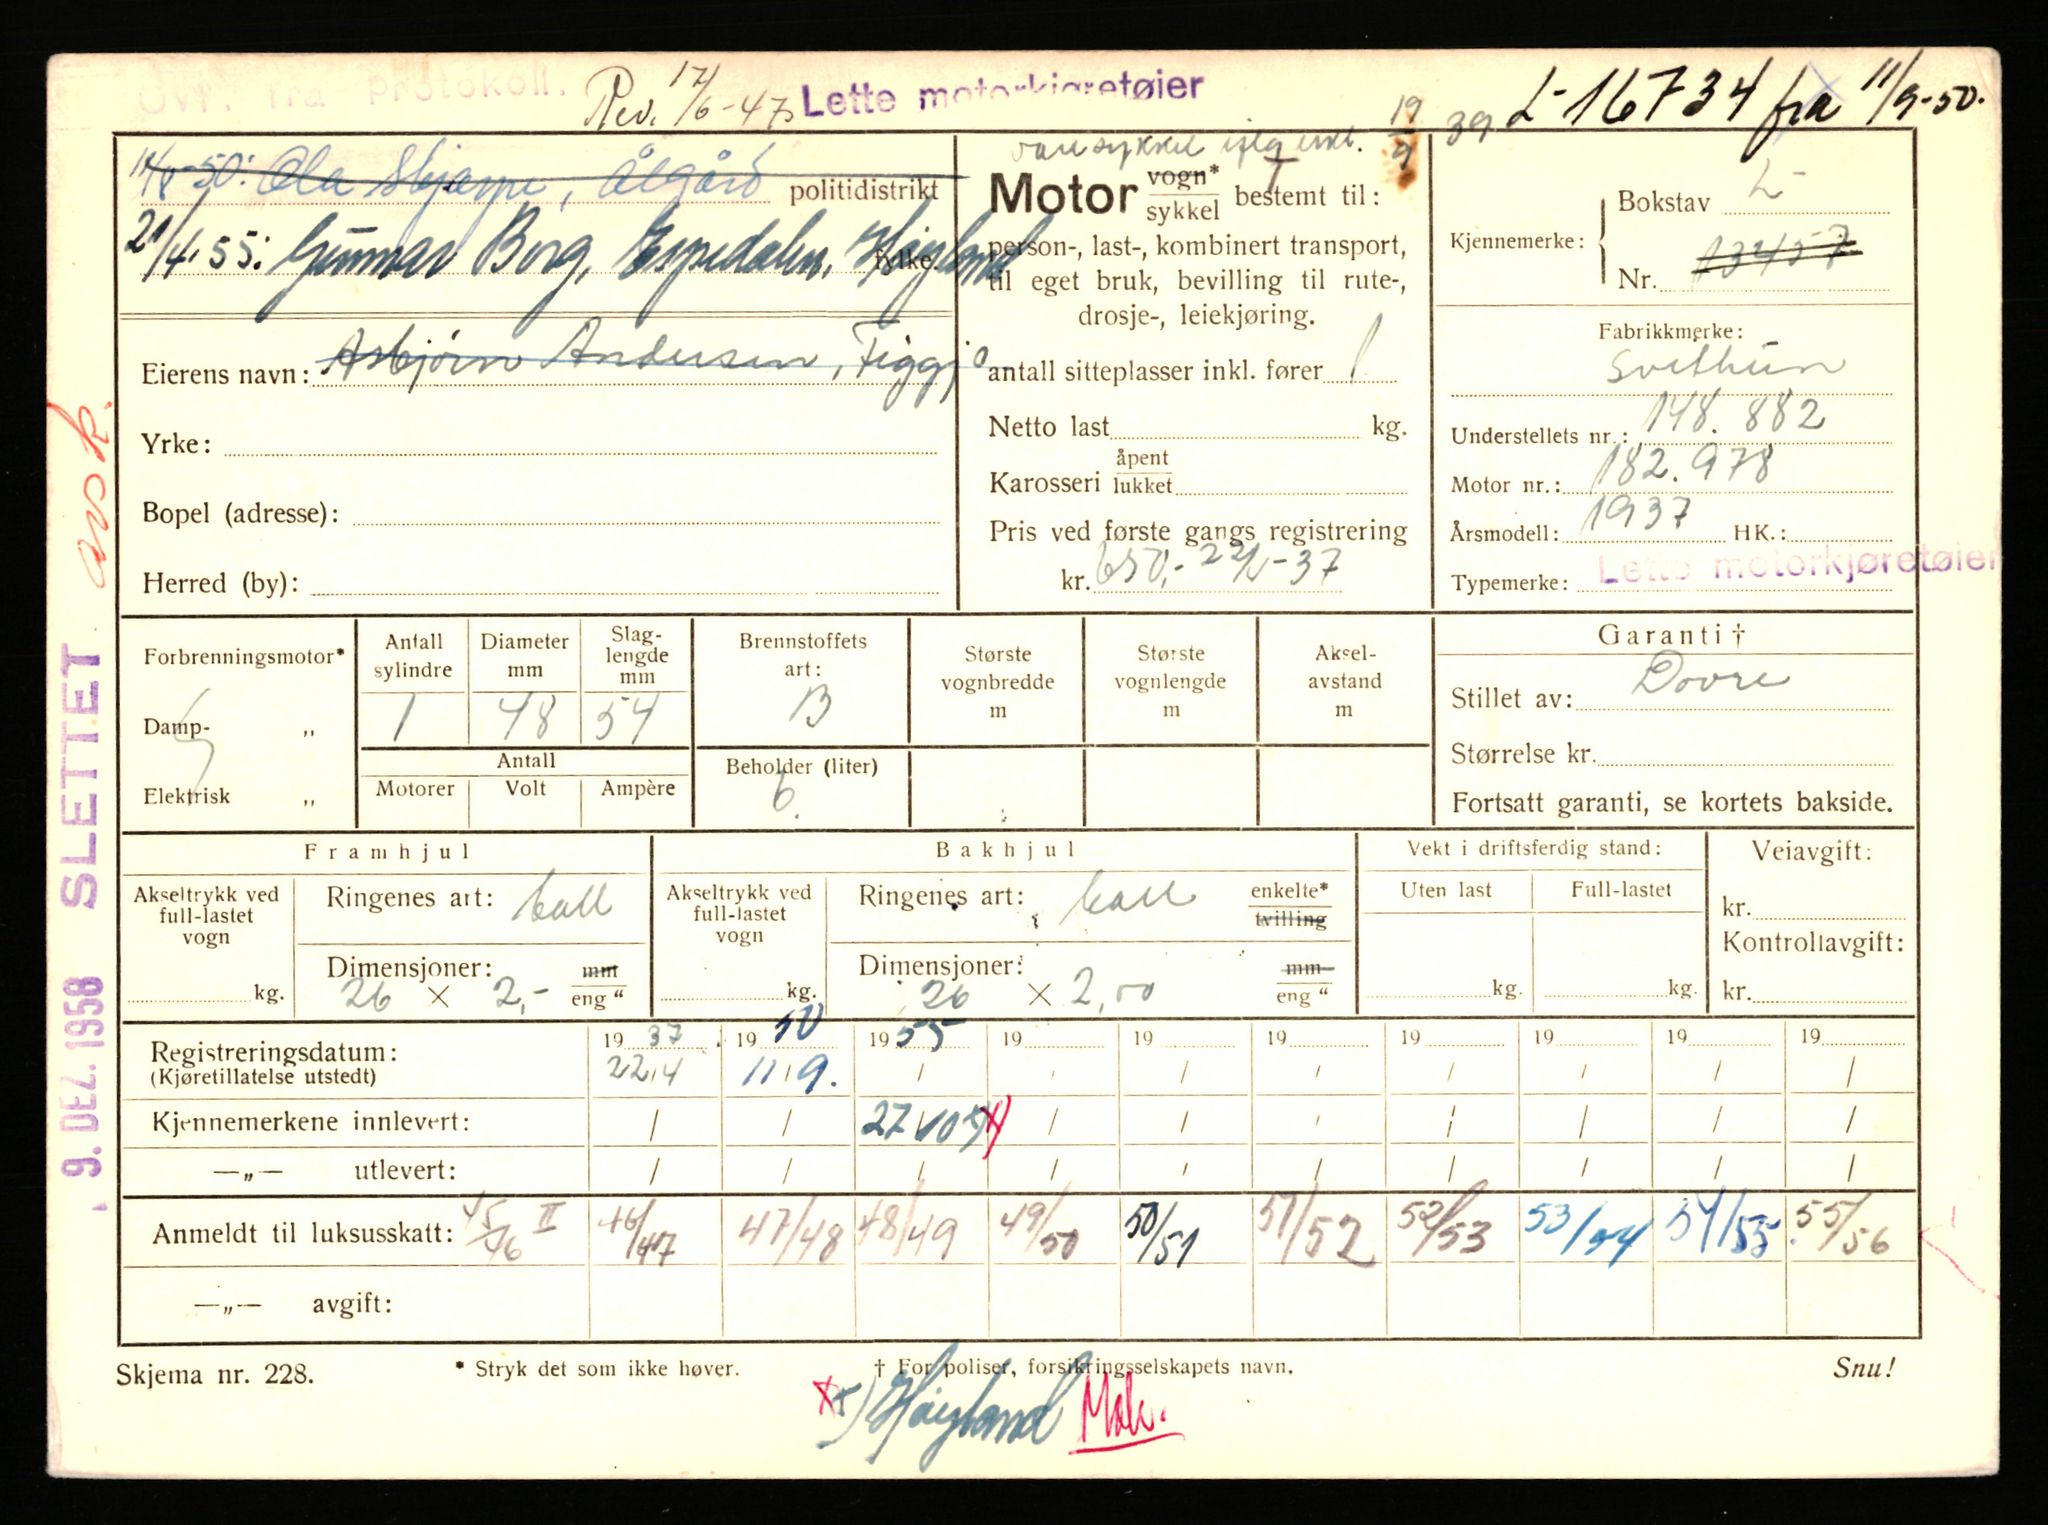 Ovf. fra Protokoll.
Rev. 17/6-47
Lette motorkjøretøier
L-16734 fra 11/9-50.
varesykkel iflg. 19/9 39
11/8-50: Ola Skjæpe, Ålgård politidistrikt
21/4.55: Gunnar Borg, Espedalen, Høyland fylke.
Eierens navn: Asbjørn Andersen, Figgjo
Yrke:
Bopel (adresse):
Herred (by):
Motor vogn* sykkel bestemt til:
person-, last-, kombinert transport,
til eget bruk, bevilling til rute-,
drosje-, leiekjøring.
antall sitteplasser inkl. fører 1
Netto last kg.
Karosseri åpent lukket
Pris ved første gangs registrering
kr. 650,- 22/4-37
Kjennemerke: Bokstav L
Nr. 13457
Fabrikkmerke:
Svithun
Understellets nr.: 148.882
Motor nr.: 182.978
Årsmodell: 1937 HK.:
Typemerke: Lette motorkjøretøier
Forbrenningsmotor*
Damp- „
Elektrisk „
Antall sylindre 1
Diameter mm 48
Slaglengde mm 54
Antall
Motorer Volt Ampère
Brennstoffets art: B
Beholder (liter) 6.
Største vognbredde m
Største vognlengde m
Aksel-avstand m
Garanti †
Stillet av: Dovre
Størrelse kr.
Fortsatt garanti, se kortets bakside.
Framhjul
Akseltrykk ved full-lastet vogn kg.
Ringenes art: ball
Dimensjoner: mm
26 × 2,- eng "
Bakhjul
Akseltrykk ved full-lastet vogn kg.
Ringenes art: ball enkelte* tvilling
Dimensjoner: mm
26 × 2,00 eng "
Vekt i driftsferdig stand:
Uten last Full-lastet
kg. kg.
Veiavgift:
kr.
Kontrollavgift:
kr.
19 37 19 50 19 55 19 19 19 19 19 19 19
Registreringsdatum: 22/4 11/9.
(Kjøretillatelse utstedt)
Kjennemerkene innlevert: 27/10 x)
—„— utlevert:
Anmeldt til luksusskatt: 45/46 II 46/47 47/48 48/49 49/50 50/51 51/52 52/53 53/54 54/55 55/56
—„— avgift:
Skjema nr. 228.
* Stryk det som ikke høver.
† For poliser, forsikringsselskapets navn.
Snu!
x) Høyland
9. DEZ. 1958 SLETTET avsk.